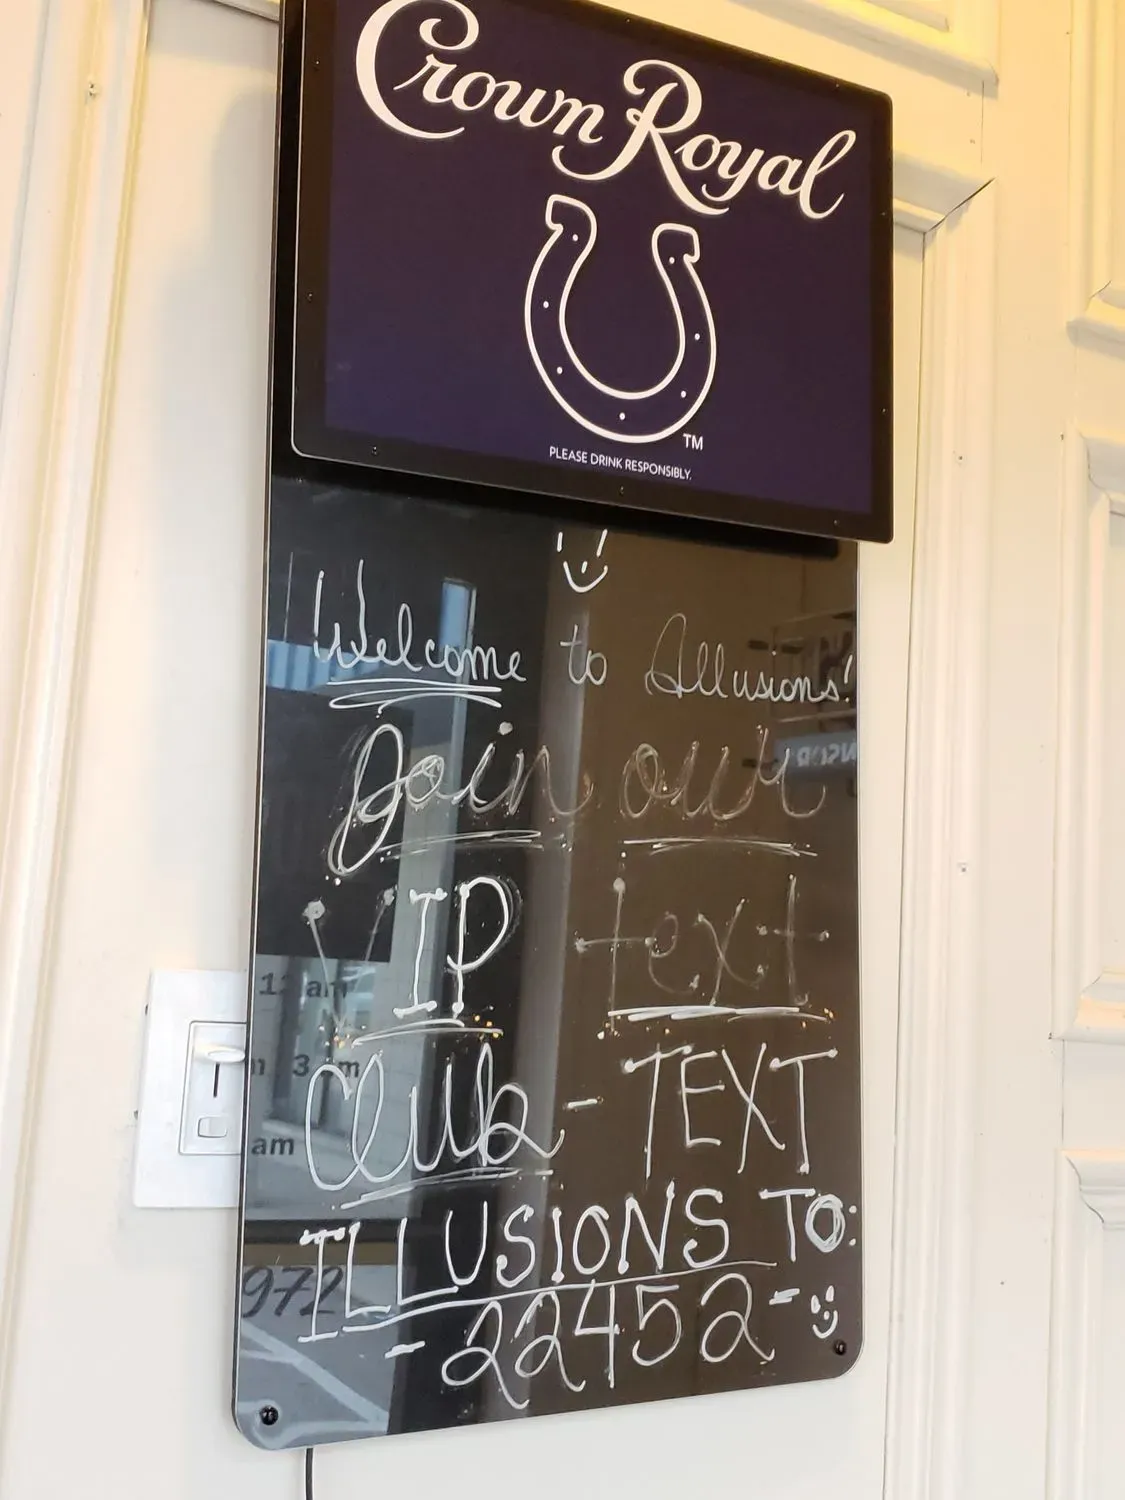 Crown Royal
TM
PLEASE DRINK RESPONSIBLY.
Welcome to Illusions!
Join our
VIP text
club - TEXT
ILLUSIONS TO:
- 22452 -
am
3 am
am
972